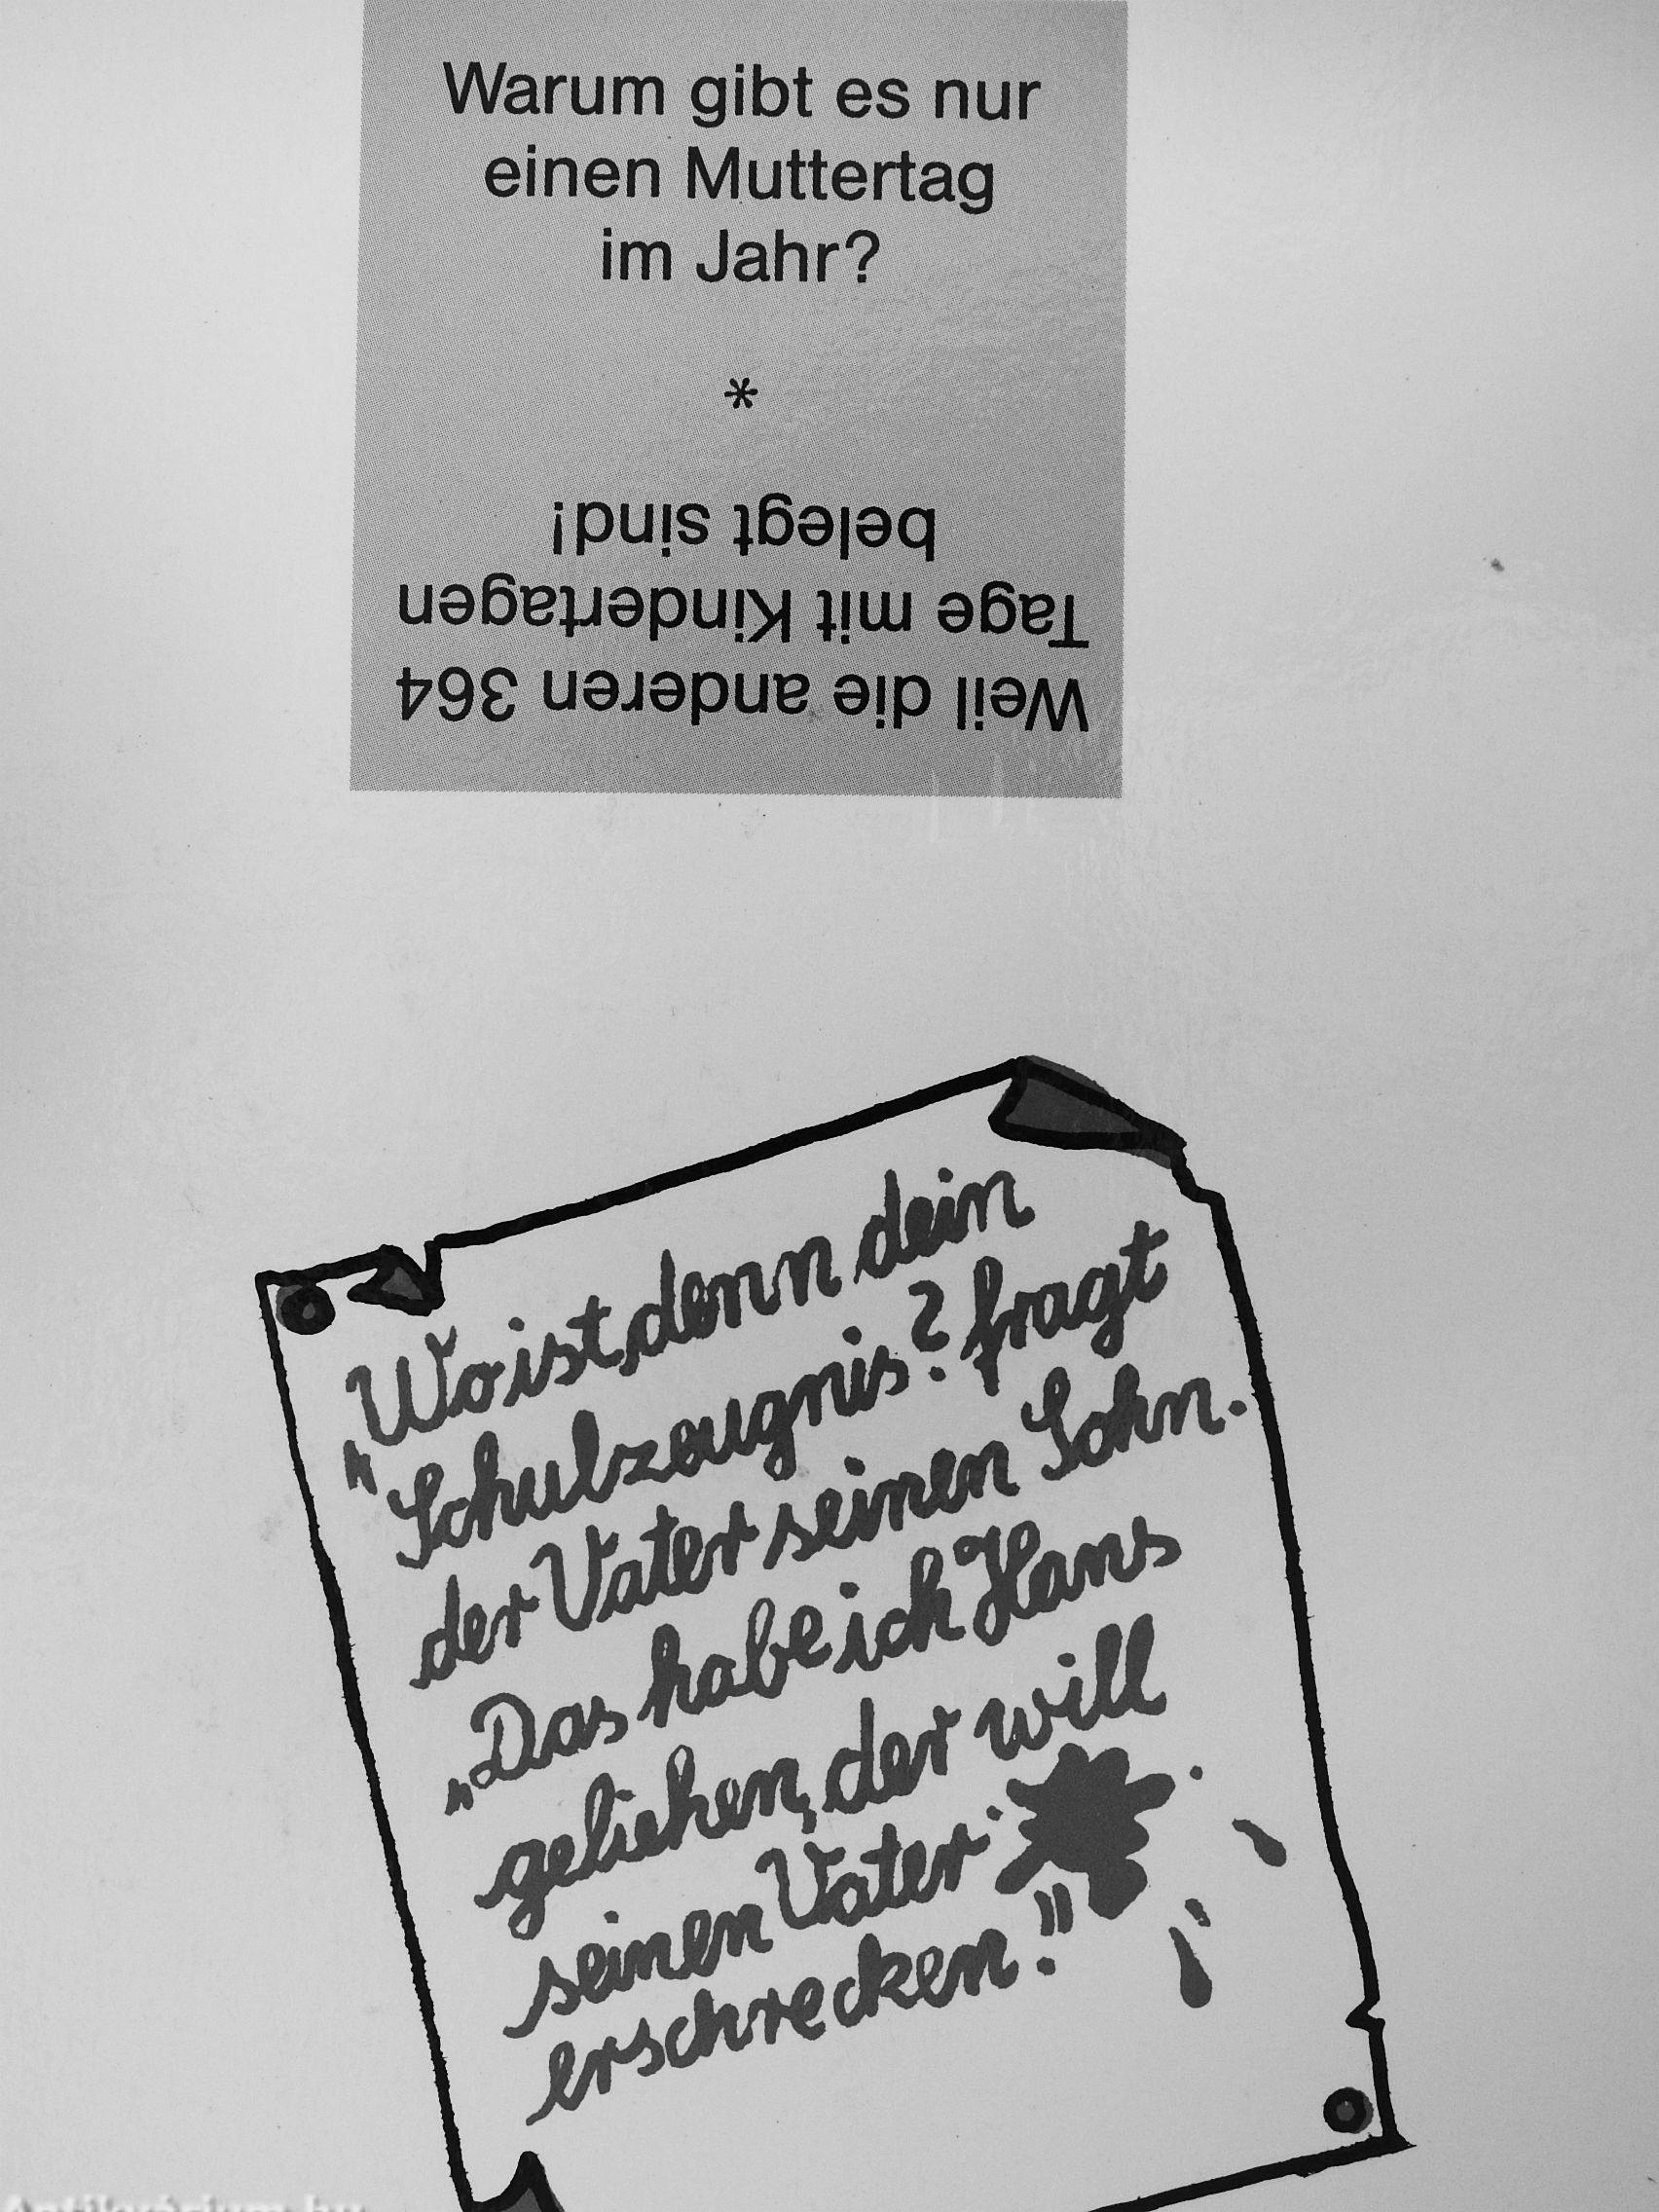 Warum gibt es nur
einen Muttertag
im Jahr?
*
Weil die anderen 364
Tage mit Kindertagen
belegt sind!
„Wo ist denn dein
Schulzeugnis? fragt
der Vater seinen Sohn.
„Das habe ich Hans
geliehen, der will
seinen Vater
erschrecken!"
Antikvárium.hu